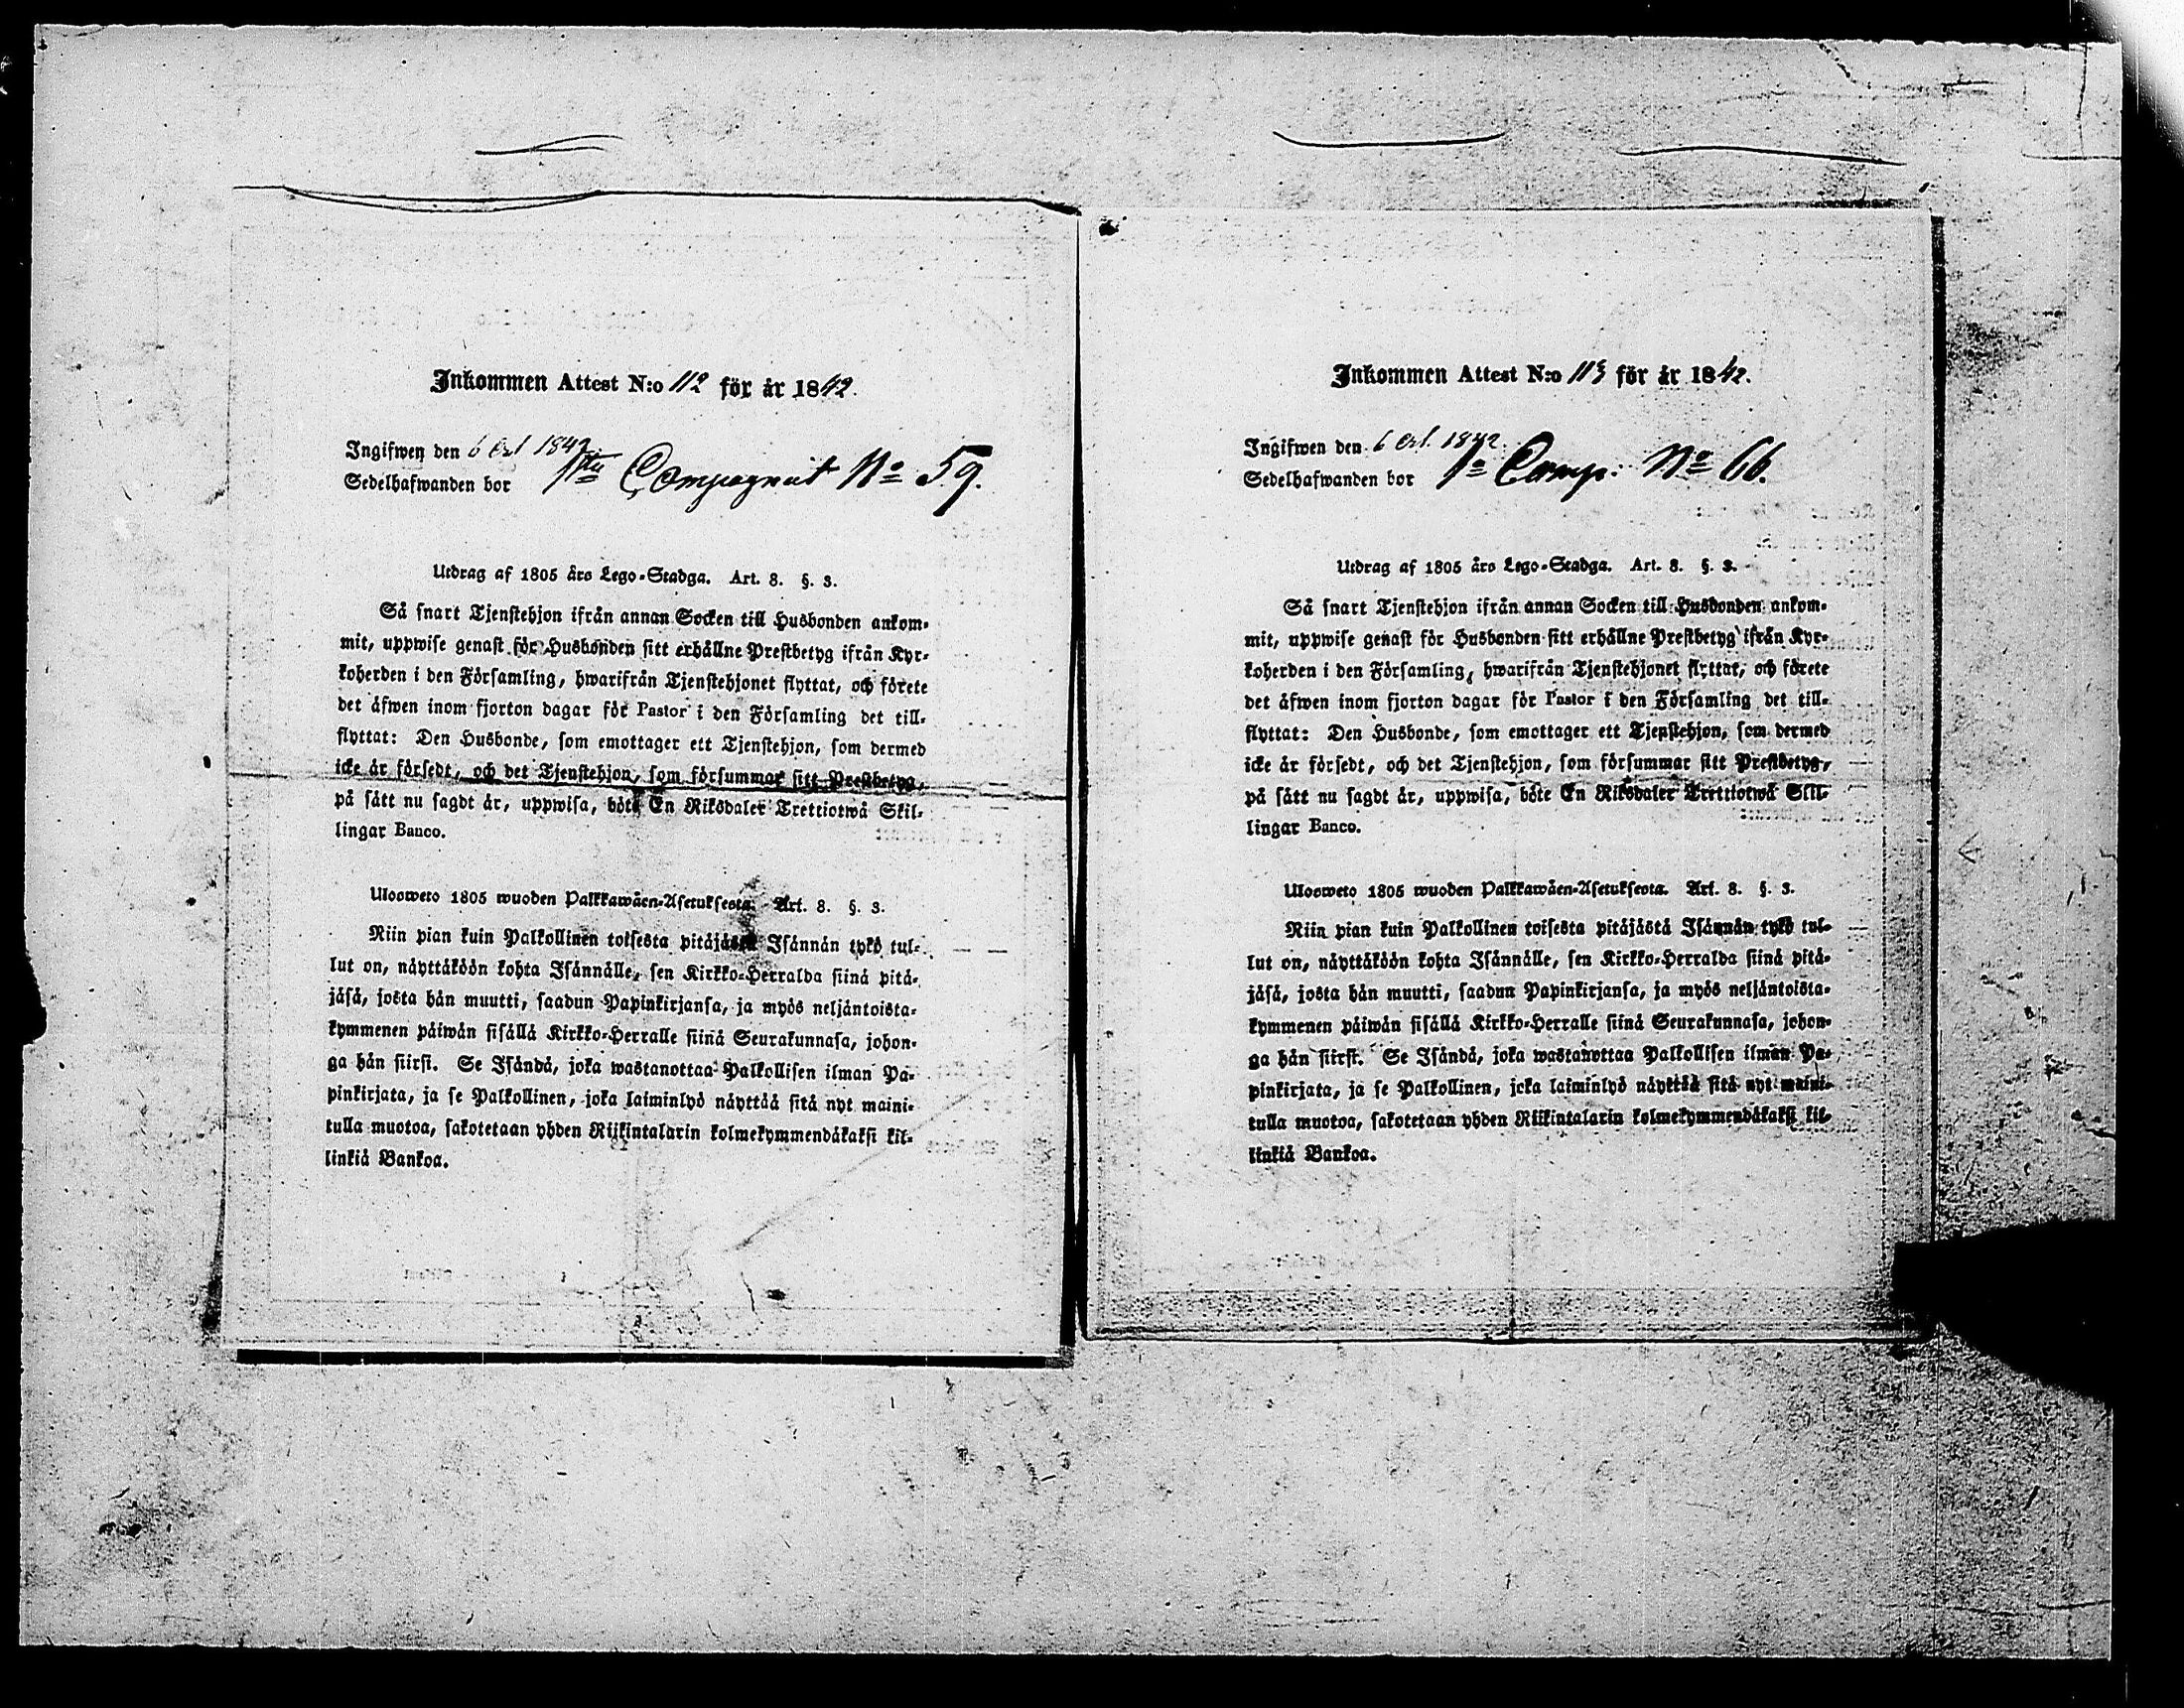 Inkommen Attest N:o 112 för år 1842.
Ingifwen den 6 Oct 1842
Sedelhafwanden bor 1sta Compagniet No 59.
Utdrag af 1805 års Lego-Stadga. Art. 8. §. 3.
Så snart Tjenstehjon ifrån annan Socken till Husbonden ankom-
mit, uppwise genast för Husbonden sitt erhållne Prestbetyg ifrån Kyr-
koherden i den Församling, hwarifrån Tjenstehjonet flyttat, och förete
det äfwen inom fjorton dagar för Pastor i den Församling det till-
flyttat: Den Husbonde, som emottager ett Tjenstehjon, som dermed
icke är försedt, och det Tjenstehjon, som försummar sitt Prestbetyg,
på sätt nu sagdt är, uppwisa, böte En Riksdaler Trettiotwå Skil-
lingar Banco.
Ulosweto 1805 wuoden Palkkawäen-Asetuksesta. Art. 8. §. 3.
Niin pian kuin Palkollinen toisesta pitäjästä Isännän tykö tul-
lut on, näyttäköön kohta Isännälle, sen Kirkko-Herralda siinä pitä-
jäsä, josta hän muutti, saadun Papinkirjansa, ja myös neljäntoista-
kymmenen päiwän sisällä Kirkko-Herralle siinä Seurakunnasa, johon-
ga hän siirsi. Se Isändä, joka wastanottaa Palkollisen ilman Pa-
pinkirjata, ja se Palkollinen, joka laiminlyö näyttää sitä nyt maini-
tulla muotoa, sakotetaan yhden Riikintalarin kolmekymmendäkaksi kil-
linkiä Bankoa.
Inkommen Attest N:o 113 för år 1842.
Ingifwen den 6 Oct. 1842.
Sedelhafwanden bor 1o Comp: No 66.
Utdrag af 1805 års Lego-Stadga. Art. 8. §. 3.
Så snart Tjenstehjon ifrån annan Socken till Husbonden ankom-
mit, uppwise genast för Husbonden sitt erhållne Prestbetyg ifrån Kyr-
koherden i den Församling, hwarifrån Tjenstehjonet flyttat, och förete
det äfwen inom fjorton dagar för Pastor i den Församling det till-
flyttat: Den Husbonde, som emottager ett Tjenstehjon, som dermed
icke är försedt, och det Tjenstehjon, som försummar sitt Prestbetyg,
på sätt nu sagdt är, uppwisa, böte En Riksdaler Trettiotwå Skil-
lingar Banco.
Ulosweto 1805 wuoden Palkkawäen-Asetuksesta. Art. 8. §. 3.
Niin pian kuin Palkollinen toisesta pitäjästä Isännän tykö tul-
lut on, näyttäköön kohta Isännälle, sen Kirkko-Herralda siinä pitä-
jäsä, josta hän muutti, saadun Papinkirjansa, ja myös neljäntoista-
kymmenen päiwän sisällä Kirkko-Herralle siinä Seurakunnasa, johon-
ga hän siirsi. Se Isändä, joka wastanottaa Palkollisen ilman Pa-
pinkirjata, ja se Palkollinen, joka laiminlyö näyttää sitä nyt maini-
tulla muotoa, sakotetaan yhden Riikintalarin kolmekymmendäkaksi kil-
linkiä Bankoa.